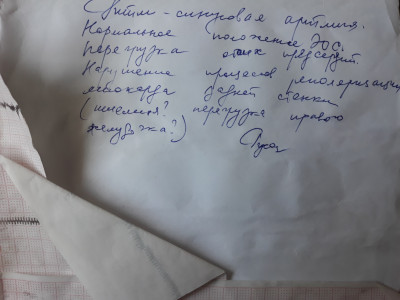 Ритм - синусовая аритмия.
Нормальное положение ЭОС.
Перегрузка обоих предсердий.
Нарушение процесов реполяризации
миокарда задней стенки
(ишемия? перегрузка правого
желудочка?)